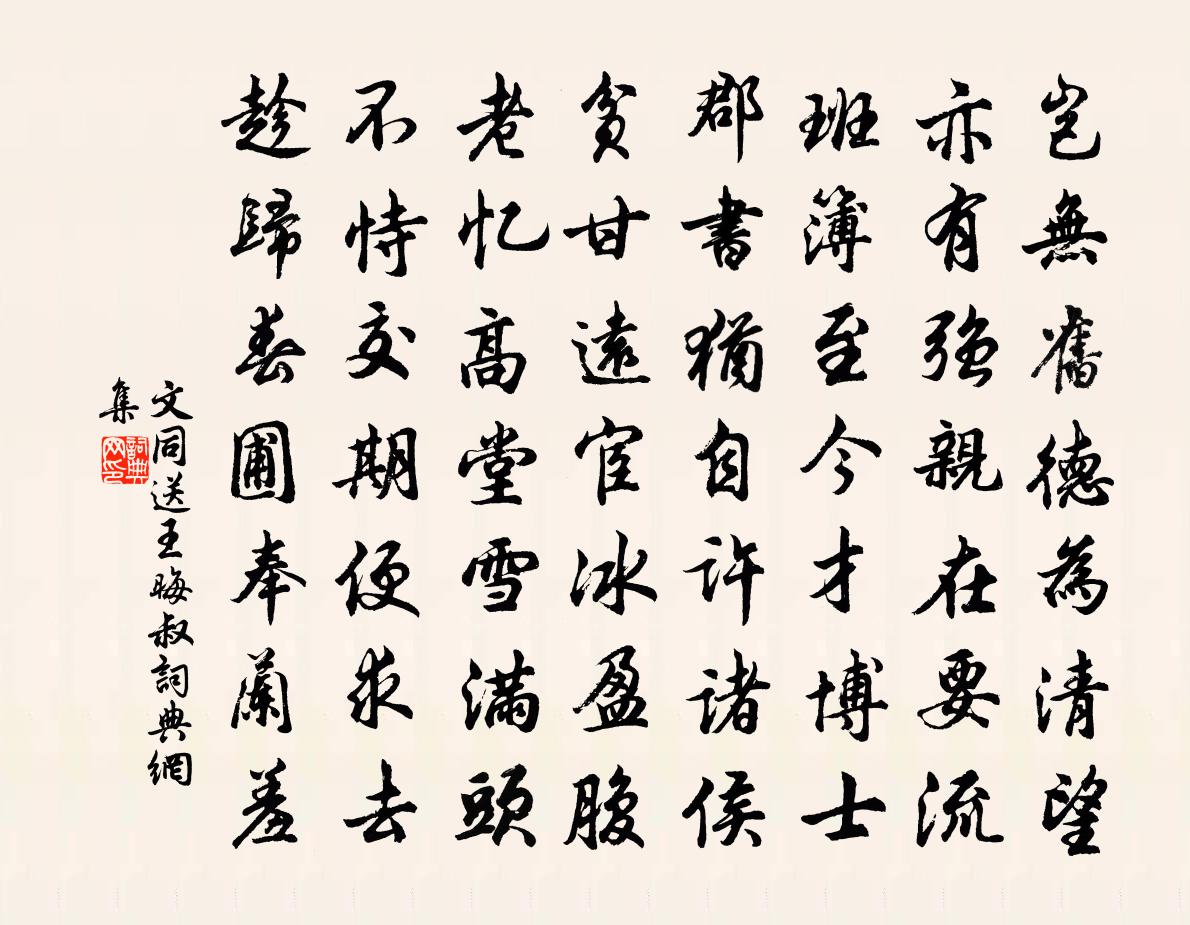 豈無舊德為清望
亦有強親在要流
班簿至今才博士
郡書猶自許諸侯
貧甘遠宦冰盈腹
老忆高堂雪滿頭
不恃交期便求去
趁歸春圃奉蘭羞
文同送王晦叔詞典網
集
詞典
网印